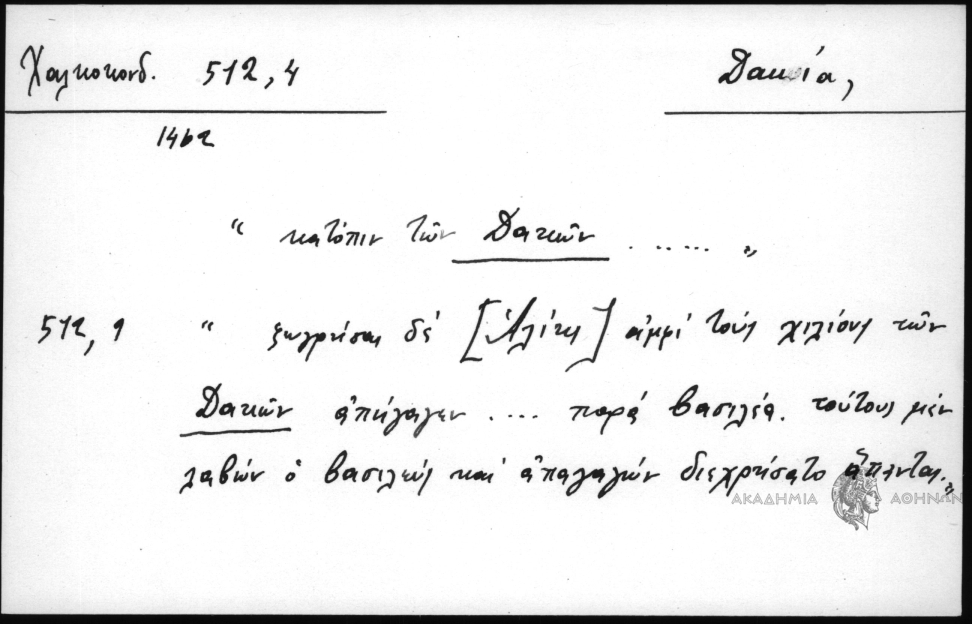 Χαλκοκονδ. 512,4
Δακία,
1462
“ κατόπιν τῶν Δακῶν ........ „
512,9 “ ζωγρήσας δὲ [Ἀλίης] ἀμφὶ τοὺς χιλίους τῶν
Δακῶν ἀπήγαγεν .... παρὰ βασιλέα. τούτους μὲν
λαβὼν ὁ βασιλεὺς καὶ ἀπαγαγὼν διεχρήσατο ἅπαντας.„
ΑΚΑΔΗΜΙΑ ΑΘΗΝΩΝ